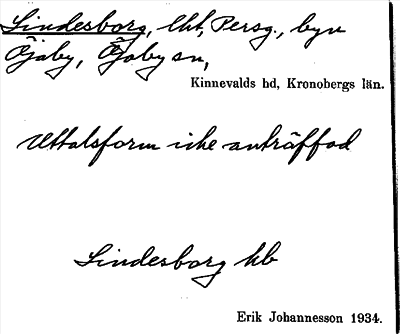 Lindesborg, lht, Persg., byn
Öjaby, Öjaby sn,
Kinnevalds hd, Kronobergs län.
Uttalsform icke anträffad
Lindesborg hb
Erik Johannesson 1934.